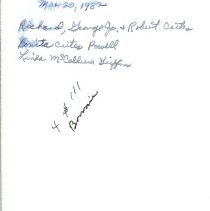 Mar 20, 1952
Richard, George Jr. & Robert Cuites
Bonita Cuites Powell
Linda McCollum Griffin
& $ !!!
Bonnie